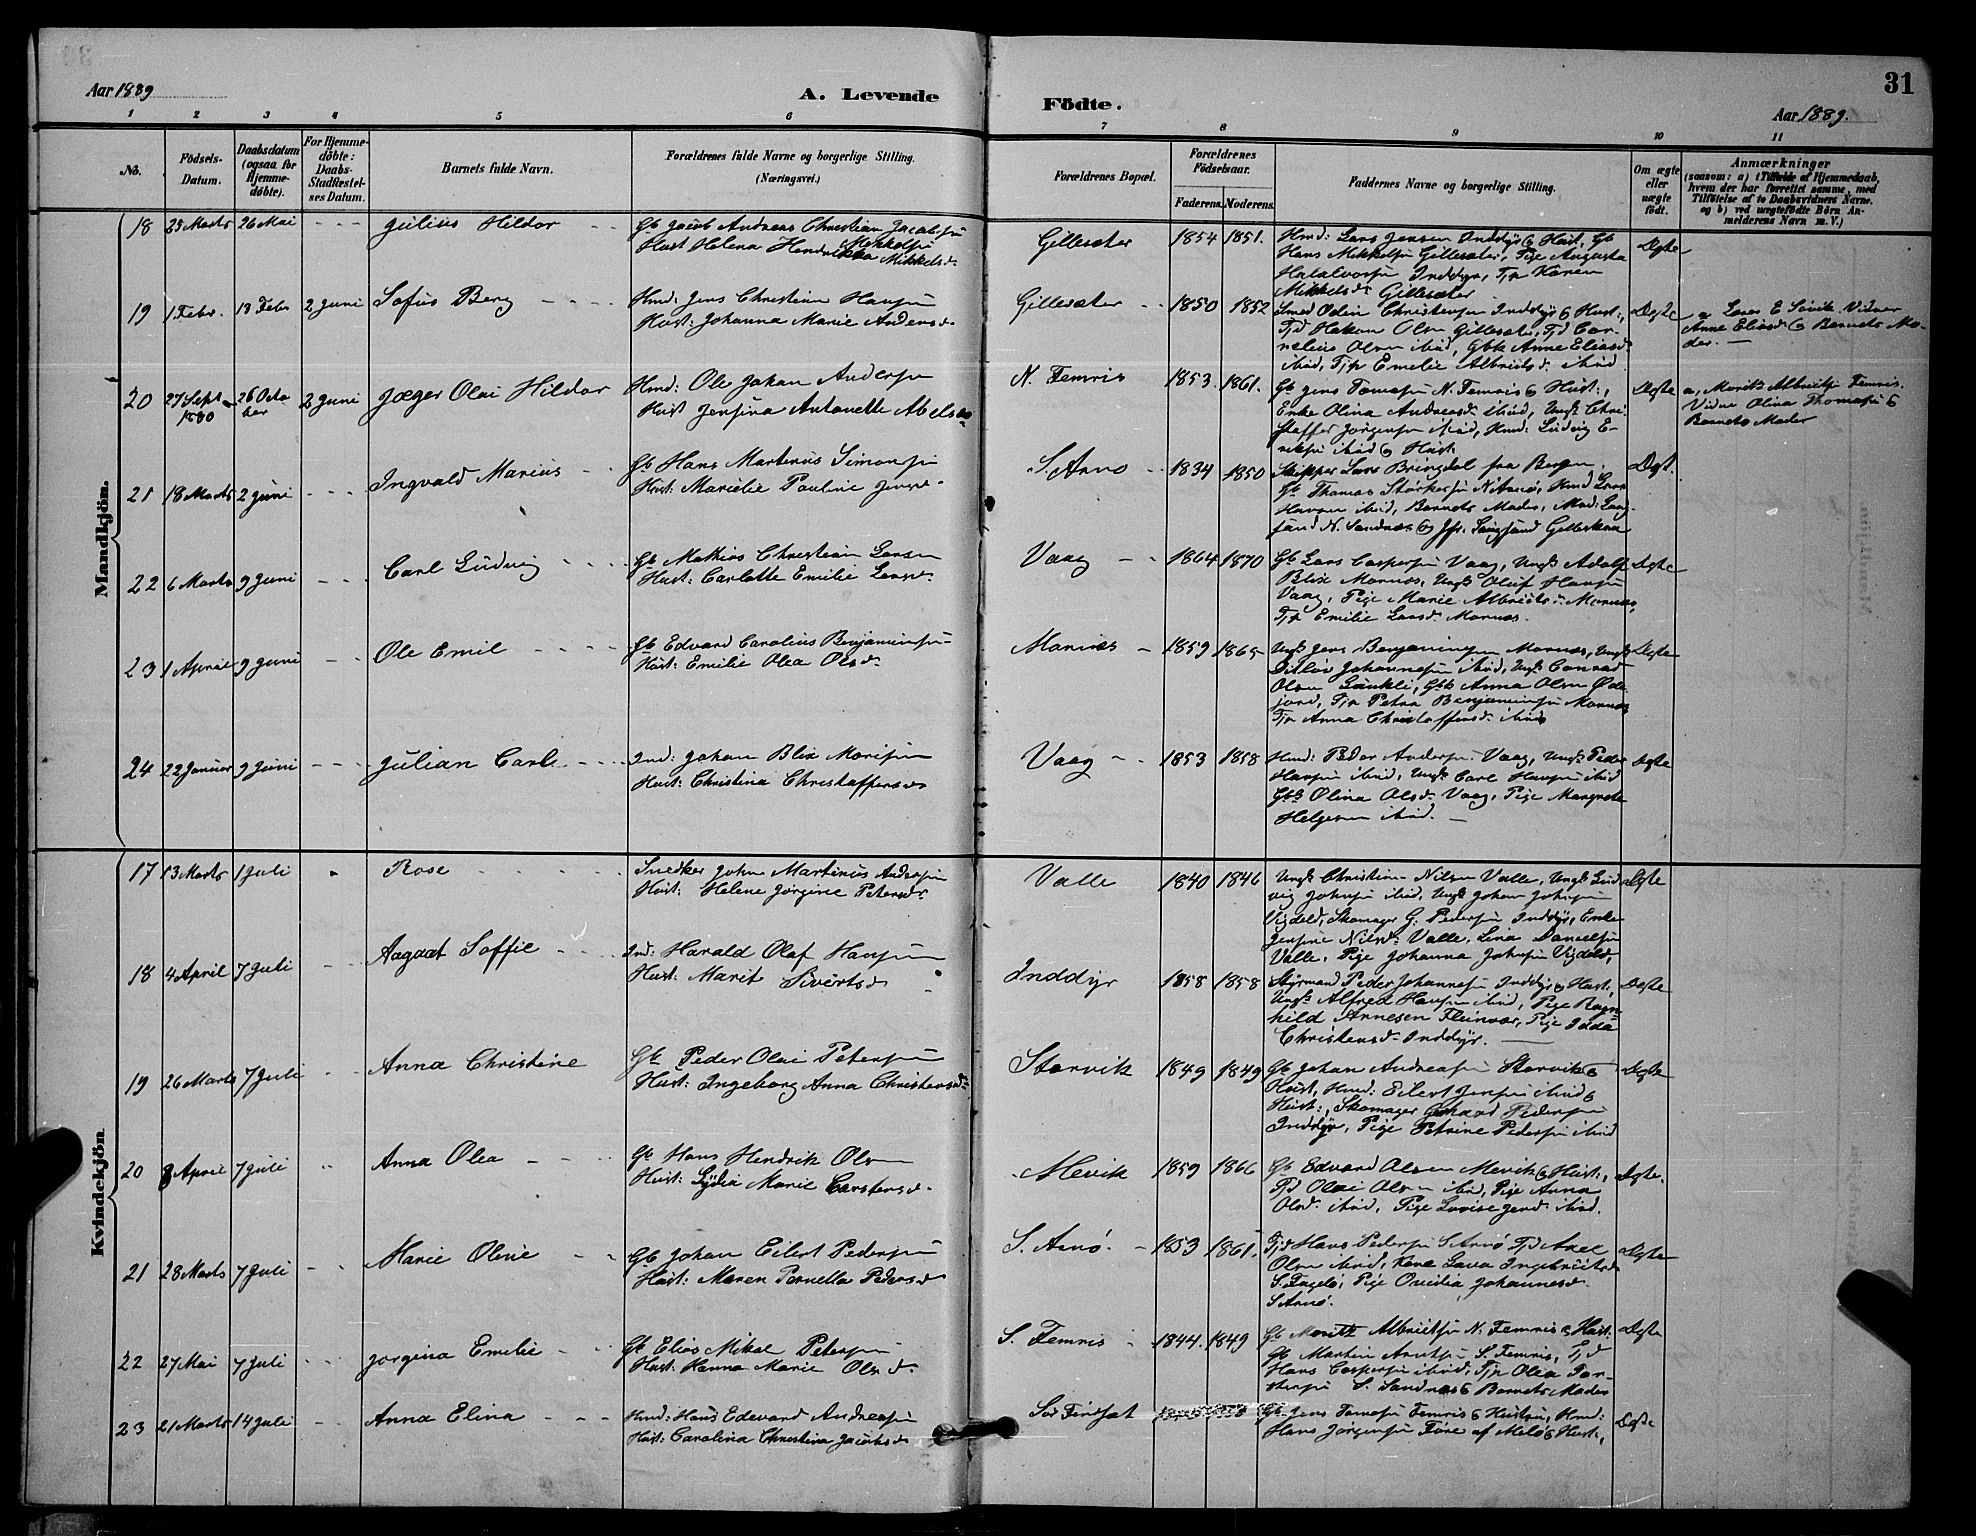 31
Aar 1889
A. Levende
Födte.
Aar 1889.
1 2 3 4 5 6 7 8 9 10 11
No.
Födsels-
Datum.
Daabsdatum
(ogsaa for
Hjemme-
døbte).
For Hjemme-
døbte:
Daabs-
Stadfæstel-
ses Datum.
Barnets fulde Navn.
Forældrenes fulde Navne og borgerlige Stilling.
(Næringsvei.)
Forældrenes Bopæl.
Forældrenes
Födselsaar.
Faderens. Moderens.
Faddernes Navne og borgerlige Stilling.
Om ægte
eller
uægte
født.
Anmærkninger
(saasom: a) i Tilfælde af Hjemmedaab,
hvem der har forrettet samme, med
Tilföielse af to Daabsvidners Navne,
og b) ved uægtefödte Börn An-
melderens Navn m. V.)
Mandkjön.
18 25 Marts 26 Mai Julius Hildor
Gb Jacob Andreas Christian Jacobsen
Hust Helena Hendrikka Mikkelsd.
Gillesæter 1854 1851.
Hmd: Lars Jensen Inddyr & Hust, Gb
Hans Mikkelsen Gillesæter, Pige Augusta
Halvorsen Inddyr, Tjp Karen
Mikkelsd. Gillesæter
Ægte
19 1 Febr. 13 Febr 2 Juni Sofus Berg
Hmd: Jens Christian Hansen
Hust: Johanna Marie Andersd.
Gillesæter 1850 1852
Smed Odin Christensen Inddyr & Hust:,
Tjd Hakon Olsen Gillesæter, Tjd Cor-
nelius Olsen ibid, Gbk Anne Eliasd.
ibid, Tjp Emelie Albrigtsd. ibid
Ægte
a, Lars E Sövik Vidner
Anne Eliasd & Barnets Mo-
der.
20 27 Sept 1880 26 Octo
ber 2 Juni Jæger Olai Hildor
Hmd: Ole Johan Andersen
Hust Jensina Antonette Abelsd.
N. Femris 1853. 1861.
Gb Jens Tomasen N. Femris & Hust:,
Enke Olina Andreasd. ibid, Ungk Chri-
staffer Jörgensen ibid, Hmd: Ludvig E-
riksen ibid & Hust.
Ægte
a, Moritz Albrigtsen Femris.
Vidne Olina Thomasen &
Barnets Moder
21 18 Marts 2 Juni Ingvald Marius
Gb Hans Martinus Simonsen
Hust: Marielie Pauline Jensd.
S. Arnö 1834 1850
Skipper Lars Bringdal fra Bergen,
Gb Thomas Störkersen N Arnö, Hmd Lars
Hansen ibid, Barnets Moder, Mad: Lang-
sund N. Sandnæs & Jfr. Langsund Gilleskaal
Ægt.
22 6 Marts 9 Juni Carl Ludvig
Gb Mathias Christian Larsen
Hust: Carlotte Emilie Larsd.
Vaag 1864 1870
Gb Lars Caspersen Vaag, Ungk Adolf
Blix Mornæs, Ungk Oluf Hansen
Vaag, Pige Marie Albrigtsd. Mornæs,
Tjp Emilie Larsd. Mornæs.
Ægte
23 1 April 9 Juni Ole Emil
Gb Edvard Carolius Benjaminsen
Hust: Emilie Olea Olsd.
Mornæs 1859 1865
Ungk Jens Benjaminsen Mornæs, Ungk
Ditlöv Johannesen ibid, Ungk Conrad
Olsen Lænkli, Gbk Anna Olsen Øde-
jord, Tjp Petra Benjaminsen Mornæs
Tjp Anna Christaffersd. ibid
Ægte
24 22 Januar 9 Juni Julian Carl
Ind: Johan Blix Morisen
Hust: Christina Christaffersd.
Vaag 1853 1858
Hmd: Peder Andersen Vaag, Ungk Peder
Hansen ibid, Ungk Carl Hansen ibid
Gbk Olina Olsd. Vaag, Pige Margrete
Helgesen ibid.
Ægte
Kvindekjön
17 13 Marts 1 Juli Rose
Snedker John Martinus Andersen
Hust: Helene Jörgine Petersd.
Valle 1840 1846
Ungk Christian Nilsen Valle, Ungk Lud
vig Johnsen ibid, Ungk Johan Johnsen
Vigdeld, Skomager G. Pedersen Inddyr, Enke
Jensine Nilsd. Valle. Lina Danielsen
Valle. Pige Johanna Johnsen Vigdeld,
Ægte
18 4 April 7 Juli Aagaat Soffie
Ind: Harald Olaf Hansen
Hust: Marit Sivertsd
Inddyr 1858 1858
Styrmand Peder Johannesen Inddyr & Hust,
Ungk Alfred Hansen ibid, Pige Ragn-
hild Arnesen Fleinvær, Pige Idda
Christensd. Inddyr.
Ægte
19 26 Marts 7 Juli Anna Christine
Gb Peder Olai Petersen
Hust: Ingeborg Anna Christensd.
Storvik 1849 1849
Gb Johan Andreasen Storvik &
Hust, Hmd: Eilert Jensen ibid &
Hust:, Skomager Gerhard Pedersen
Inddyr, Pige Petrine Pedersen ibid
Ægte
20 8 April 7 Juli Anna Olea
Gb Hans Hendrik Olsen
Hust: Lydia Marie Carstensd.
Mevik 1859 1866
Gb Edvard Olsen Mevik & Hust:,
Tjd Olai Olsen ibid, Pige Anna
Olsd. ibid, Pige Lovise Jensd. ibid.
Ægte.
21 28 Marts 7 Juli Marie Oline
Gb Johan Eilert Pedersen
Hust: Maren Pernella Pedersd
S. Arnö. 1853 1861.
Tjd Hans Pedersen S Arnö Tjd Axel
Olsen ibid, Kone Lava Ingebrigtsd
S. Fugelö, Pige Onielia Johannesd.
S Arnö.
Ægte
22 27 Mai 7 Juli Jorgina Emelie
Gb Elias Mikal Petersen
Hust: Hanna Marie Olsd.
S. Femris 1844. 1849
Gb Moritz Albrigtsen N. Femris & Hust.
Gb Martin Arntsen S. Femris, Tjd
Hans Caspersen ibid, Tjp Olea Tor-
stensen S. Sandnæs & Barnets Moder
Ægte
23 21 Marts 14 Juli Anna Elina
Hmd: Hans Edevard Andreasen
Hust: Carolina Christina Jacobsd
Sör Finsæt
Gb Jens Tomasen Femris & Hustru, Hmd:
Hans Jörgensen Före af Melö & Hust:,
Ægte